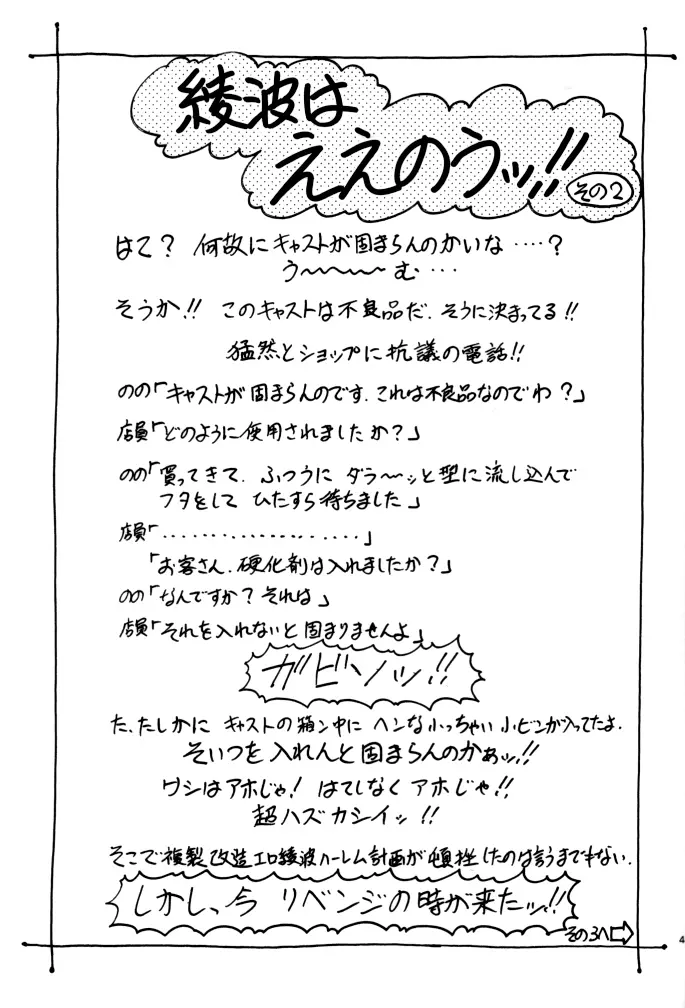 綾波は
ええのうッ!!
その2
はて? 何故にキャストが固まらんのかいな ‥‥?
う〜〜〜〜む ‥‥
そうか!! このキャストは不良品だ. そうに決まってる!!
猛然とショップに抗議の電話!!
のの「キャストが固まらんのです. これは不良品なのでわ?」
店員「どのように使用されましたか?」
のの「買ってきて. ふつうに ダラ〜〜ッと型に流し込んで
フタをして ひたすら待ちました」
店員「‥‥‥‥‥‥‥‥‥‥」
「お客さん. 硬化剤は入れましたか?」
のの「なんですか? それは」
店員「それを入れないと固まりませんよ」
ガビンッ!!
た、たしかに キャストの箱ン中に ヘンな小っちゃい小ビンが入ってたよ.
そいつを入れんと固まらんのかぁッ!!
ワシはアホじゃ! はてしなく アホじゃ!!
超ハズカシイッ!!
そこで複製改造エロ綾波ハーレム計画が頓挫したのは言うまでもない.
しかしっ、今 リベンジの時が来たッ!!
その3へ
4